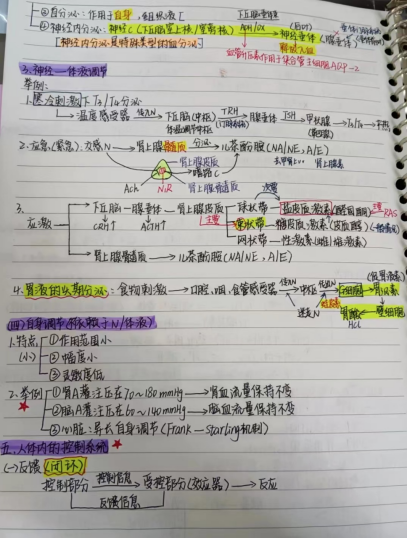 ②自分泌:作用于自身,组织液[
③神经内分泌:神经C(下丘脑室上核/室旁核) ADH/OX 神经垂体
释放入血
[神经内分泌是特殊类型的血分泌]
血管升压素作用于集合管主细胞AQP-2
3.神经—体液调节
举例:
1.寒冷刺激下T3/T4分泌
温度感受器 传入N 下丘脑(中枢) TRH 腺垂体 TSH 甲状腺 T3/T4
体温调节中枢
2.应急(紧急):交感N 肾上腺髓质 分泌 儿茶酚胺(NA/NE,A/E)
肾上腺皮质
嗜铬C
ACh N2R 肾上腺髓质
去甲肾上 肾上腺素
3.
应激 下丘脑—腺垂体—肾上腺皮质 球状带—盐皮质激素(醛固酮) RAS
CRH↑ ACTH↑ 主要 束状带—糖皮质激素(皮质醇)
网状带—性激素(雄激素)
肾上腺髓质 儿茶酚胺(NA/NE,A/E)
4.胃液的头期分泌:食物刺激 口腔,咽,食管感受器 传入N 中枢 G细胞 胃泌素
迷走N 胃酸 壁细胞
HCl
(四)自身调节(不依赖于N/体液)
1.特点 ①作用范围小
(小) ②幅度小
③灵敏度低
2.举例 ①肾A灌注压在70~180mmHg 肾血流量保持不变
②脑A灌注压在60~140mmHg 脑血流量保持不变
③心脏:异长自身调节(Frank—starling机制)
五、人体内的控制系统
(一)反馈(闭环)
控制部分 控制信息 受控部分(效应器) 反应
反馈信息